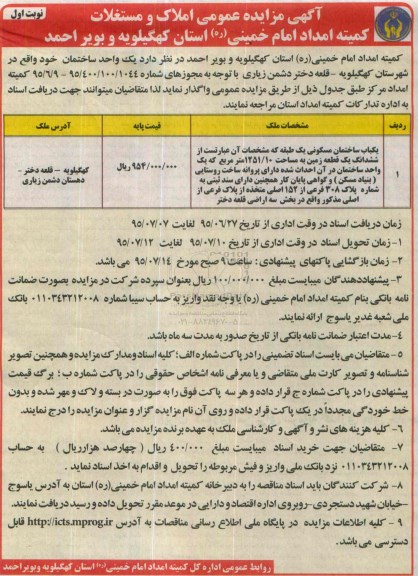 نوبت اول
آگهی مزایده عمومی املاک و مستغلات
کمیته امداد امام خمینی(ره) استان کهگیلویه و بویر احمد
کمیته امداد امام خمینی(ره) استان کهگیلویه و بویر احمد در نظر دارد یک واحد ساختمان خود واقع در
شهرستان کهگیلویه - قلعه دختر دشمن زیاری با توجه به مجوزهای شماره ۹۵/۴۰۰/۱۰۰/۱۰۴۴ - ۹۵/۶/۹ کمیته
امداد مرکز طبق جدول ذیل از طریق مزایده عمومی واگذار نماید لذا متقاضیان میتوانند جهت دریافت اسناد
به اداره تدارکات کمیته امداد استان مراجعه نمایند.
ردیف	مشخصات ملک	قیمت پایه	آدرس ملک
یکباب ساختمان مسکونی یک طبقه که مشخصات آن عبارتست از
ششدانگ یک قطعه زمین به مساحت ۱۲۵۱/۱۰ متر مربع که یک
واحد ساختمان در آن احداث شده دارای پروانه ساخت روستایی
( بنیاد مسکن ) و گواهی پایان کار همچنین دارای سند ثبتی به
شماره پلاک ۳۰۸ فرعی از ۱۵۲ اصلی متخذه از پلاک فرعی از
اصلی مذکور واقع در بخش سه اراضی قلعه دختر
۱
۹۵۴/۰۰۰/۰۰۰ ریال
کهگیلویه - قلعه دختر -
دهستان دشمن زیاری
زمان دریافت اسناد در وقت اداری از تاریخ ۹۵/۰۶/۲۷ لغایت ۹۵/۰۷/۰۷
۱- زمان تحویل اسناد در وقت اداری از تاریخ ۹۵/۰۷/۱۰ لغایت ۹۵/۰۷/۱۲
۲- زمان بازگشایی پاکتهای پیشنهادی : ساعت ۹ صبح مورخ ۹۵/۰۷/۱۴ می باشد.
۳- پیشنهاددهندگان میبایست مبلغ ۱۰۰/۰۰۰/۰۰۰ ریال بعنوان سپرده شرکت در مزایده بصورت ضمانت
نامه بانکی بنام کمیته امداد امام خمینی (ره) یا وجه نقد واریز به حساب سیبا شماره ۰۱۱۰۳۴۳۲۱۲۰۰۸ بانک
ملی شعبه غدیر یاسوج ارائه نمایند.
۴- مدت اعتبار ضمانت نامه بانکی از تاریخ صدور به مدت سه ماه باشد.
۵- متقاضیان می بایست اسناد تضمینی را در پاکت شماره الف؛ کلیه اسناد و مدارک مزایده و همچنین تصویر
شناسنامه و تصویر کارت ملی متقاضی و یا معرفی نامه اشخاص حقوقی را در پاکت شماره ب؛ برگ قیمت
پیشنهادی را در پاکت شماره ج قرار داده و هر سه پاکت فوق را به صورت در بسته و لاک و مهر شده و بدون
خط خوردگی مجدداً در یک پاکت قرار داده و روی آن نام مزایده گزار و عنوان مزایده را درج نمایند.
۶- کلیه هزینه های نشر و آگهی و کارشناسی ملک به عهده برنده مزایده می باشد.
۷- متقاضیان جهت خرید اسناد میبایست مبلغ ۴۰۰/۰۰۰ ریال ( چهارصد هزار ریال ) به حساب
۰۱۱۰۳۴۳۲۱۲۰۰۸ نزد بانک ملی واریز و فیش مربوطه را تحویل و اقدام به اخذ اسناد نماید .
۸- شرکت کنندگان باید اسناد مناقصه را به دبیرخانه کمیته امداد امام خمینی(ره) استان به آدرس یاسوج
-خیابان شهید دستجردی -روبروی اداره اقتصاد و دارایی در موعد مقرر تحویل داده و رسید دریافت نمایند.
۹- کلیه اطلاعات مزایده در پایگاه ملی اطلاع رسانی مناقصات به آدرس http://icts.mprog.ir قابل
دسترسی می باشد.
روابط عمومی اداره کل کمیته امداد امام خمینی(ره) استان کهگیلویه و بویراحمد